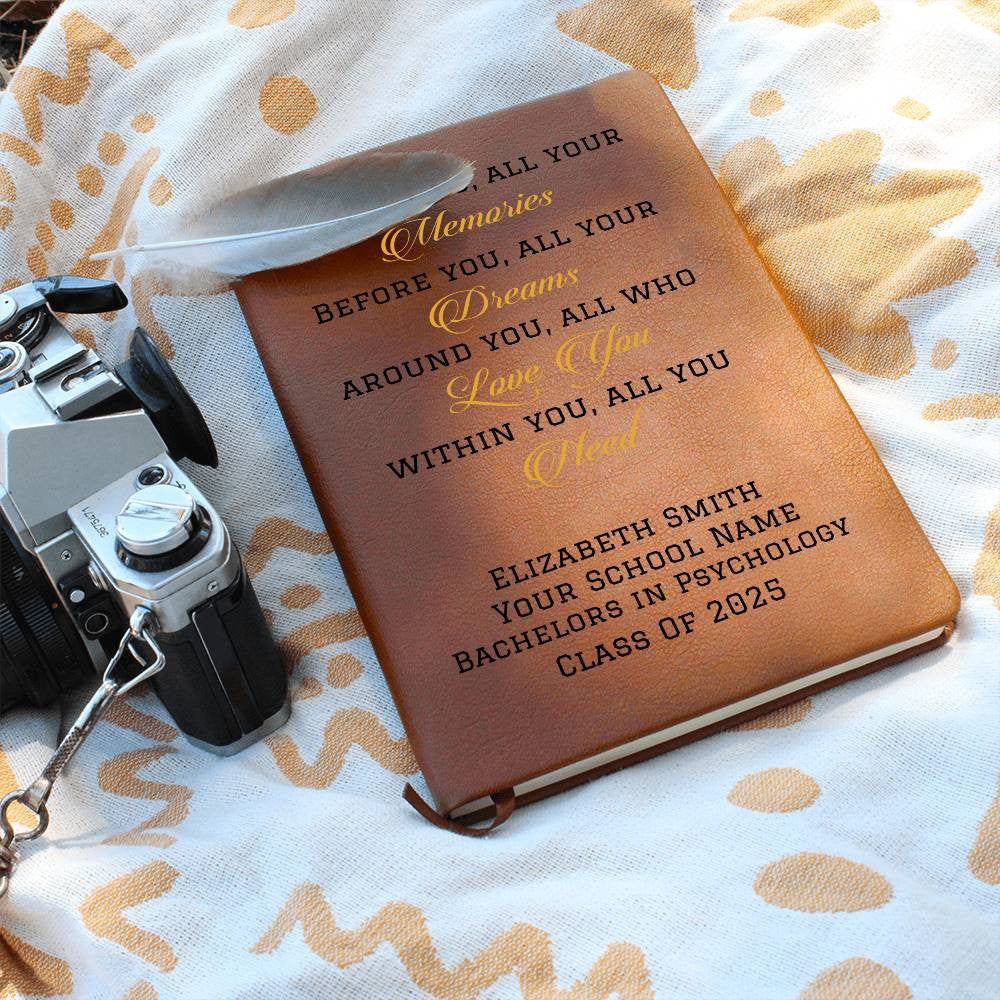 , ALL YOUR
Memories
BEFORE YOU, ALL YOUR
Dreams
AROUND YOU, ALL WHO
Love You
WITHIN YOU, ALL YOU
Need
ELIZABETH SMITH
YOUR SCHOOL NAME
BACHELORS IN PSYCHOLOGY
CLASS OF 2025
367547A